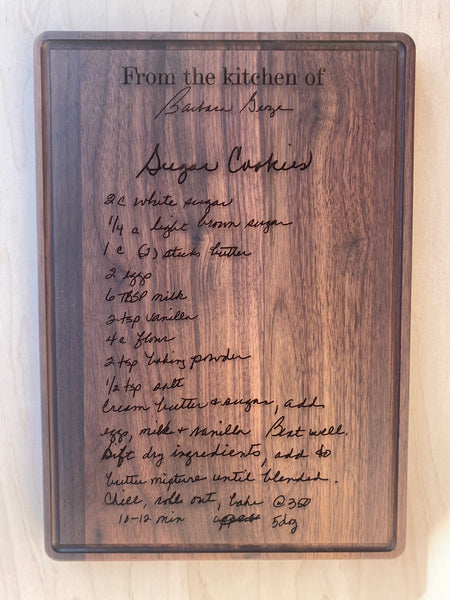 From the kitchen of
Barbara
Sugar Cookies
2 c white sugar
1/4 c light brown sugar
1 c (2) sticks butter
2 eggs
6 TBSP milk
2 tsp vanilla
4 c flour
2 tsp baking powder
1/2 tsp salt
Cream butter & sugar, add
eggs, milk + vanilla Beat well.
Sift dry ingredients, add to
butter mixture until blended.
Chill, roll out, bake @ 350
10-12 min 5 doz